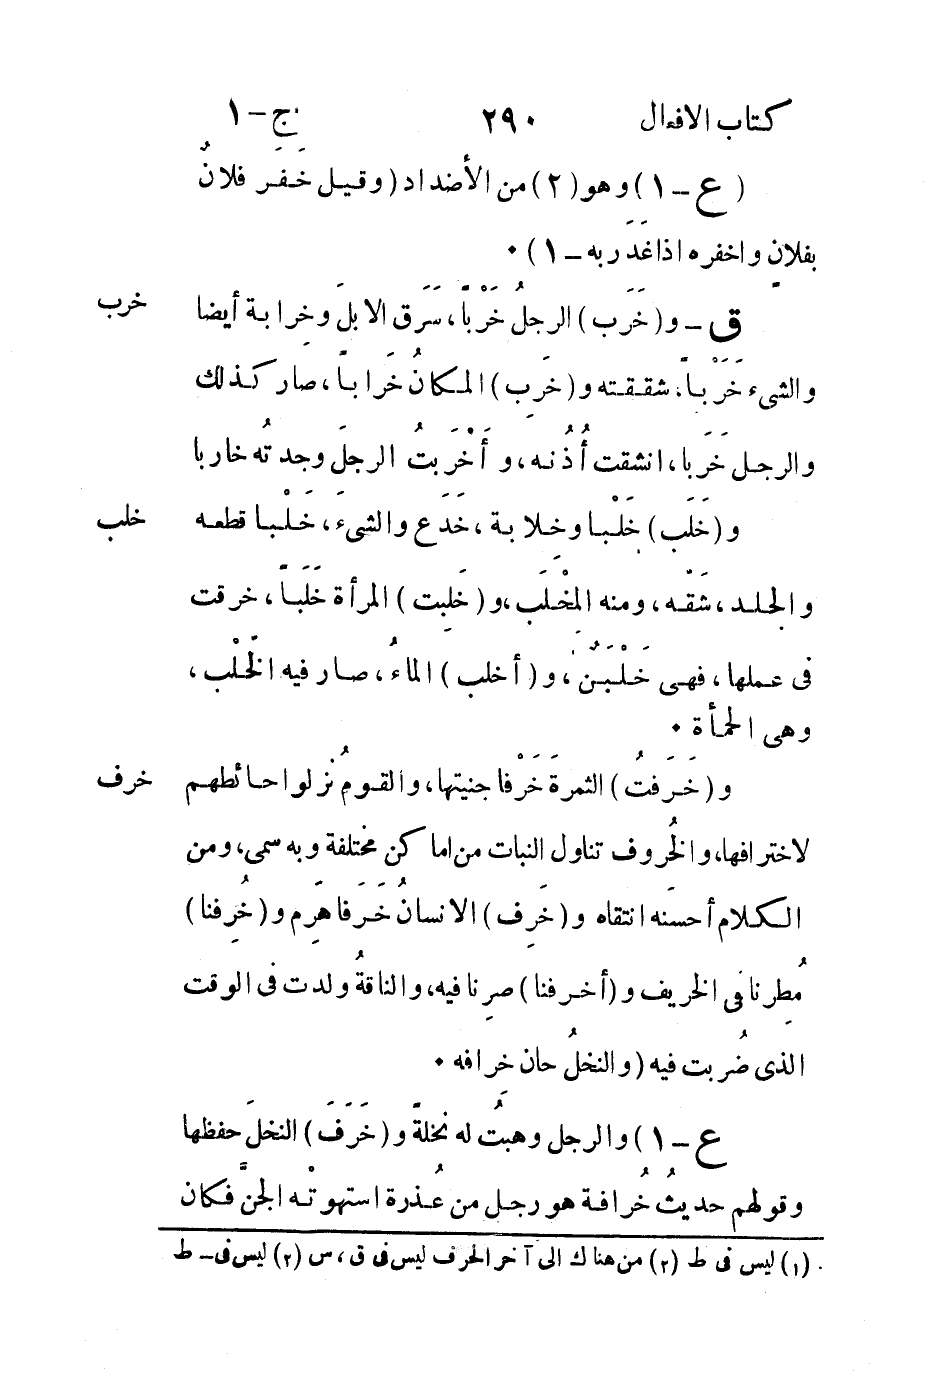 كتاب الافعال ٢٩٠ ج - ١
( ع - ١ ) وهو ( ٢ ) من الأضداد ( وقيل خَفَر فلانٌ
بفلانٍ واخفره اذا غَدَر به - ١ ) ٠
ق - و ( خَرَب ) الرجلُ خَرْباً، سَرَق الابلَ وخِرابة أيضا خرب
والشىءَ خَرْباً، شققته و ( خَرِب ) المكانُ خَراباً، صار كذلك
والرجل خَرَبا، انشقت أُذُنه، و أَخْرَبتُ الرجلَ وجدتُه خاربا
و ( خَلَب ) خَلْبا وخِلابة، خَدَع والشىءَ، خَلْبا قطعه خلب
والجلد، شَقّه، ومنه المِخْلَب، و ( خَلِبت ) المرأة خَلَباً، خرقت
فى عملها، فهى خَلْبَنٌ، و ( أخلب ) الماءُ، صار فيه الخُلْب،
وهى الحمأة ٠
و ( خَرَفتُ ) الثمرةَ خَرْفا جنيتها، والقومُ نزلوا حائطهم خرف
لاخترافها، والخُروف تناول النبات من اماكن مختلفة وبه سمى، ومن
الكلام أحسنَه انتقاه و ( خَرِف ) الانسانُ خَرَفا هَرِم و ( خُرِفنا )
مُطِرنا فى الخريف و ( أخرفنا ) صرنا فيه، والناقةُ ولدت فى الوقت
الذى ضُرِبت فيه ( والنخلُ حان خرافه ٠
ع - ١ ) والرجل وهبتُ له نخلةً و ( خَرَفَ ) النخلَ حفظها
وقولهم حديثُ خُرافة هو رجل من عُذرة استهوتْه الجنّ فكان
(١) ليس فى ط (٢) من هناك الى آخر الحرف ليس فى ق ، س (٢) ليس فى - ط